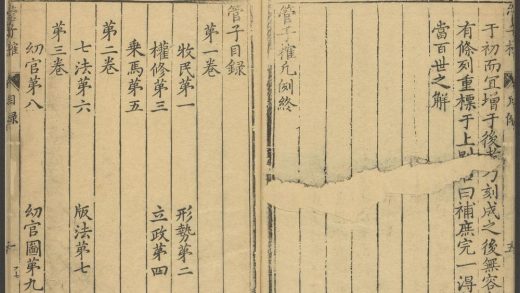 于初而宜增于後 刻成之後無容
有條列重標于上 名曰補庶完一淂
當百世之解
管子榷凡例終
管子目録
第一卷
牧民第一 形勢第二
權修第三 立政第四
乘馬第五
第二卷
七法第六 版法第七
第三卷
幼官第八 幼官圖第九
管子榷 目録